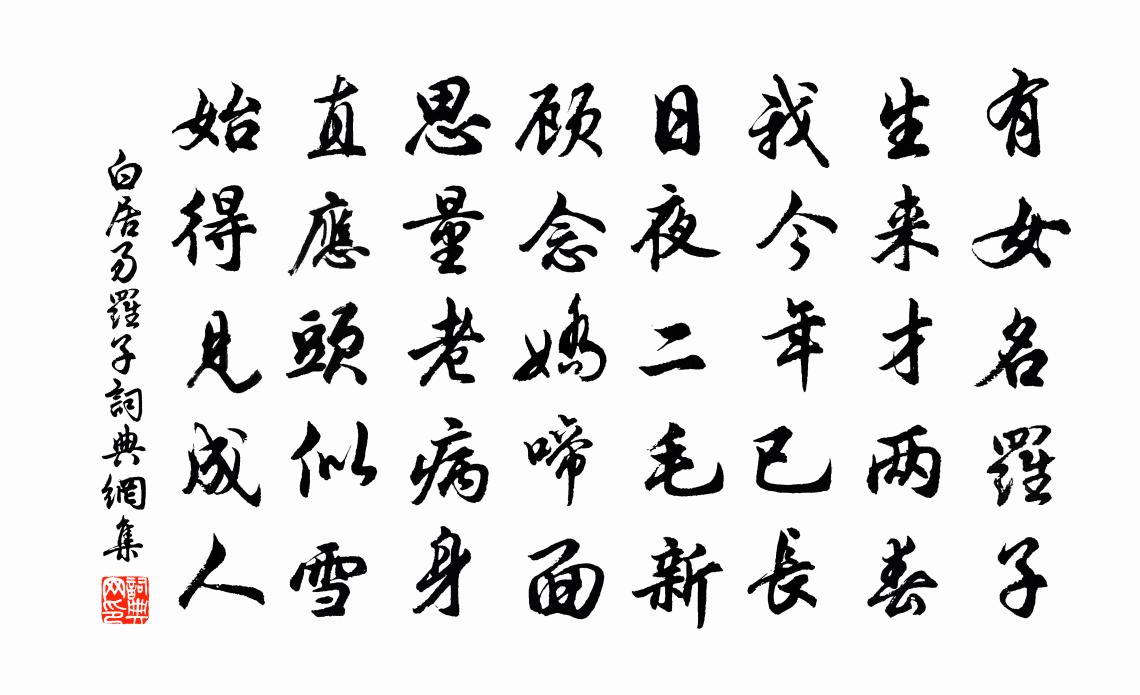 有女名羅子
生来才两春
我今年已長
日夜二毛新
顾念嬌啼面
思量老病身
直應頭似雪
始得見成人
白居易羅子詞典網集
詞典网印